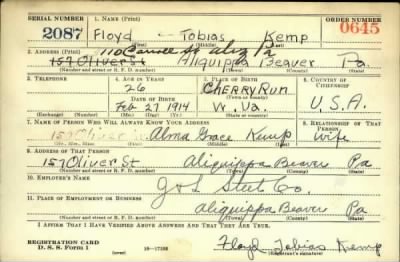 SERIAL NUMBER 1. NAME (Print) ORDER NUMBER
2087 Floyd Tobias Kemp 0645
(First) (Middle) (Last)
2. ADDRESS (Print) 110
157 Oliver St Aliquippa Beaver Pa.
(Number and street or R. F. D. number) (Town) (County) (State)
3. TELEPHONE 4. AGE IN YEARS 5. PLACE OF BIRTH 6. COUNTRY OF CITIZENSHIP
26 CHERRY RUN
DATE OF BIRTH (Town or county)
Feb 27 1914 W. Va. U.S.A.
(Exchange) (Number) (Mo.) (Day) (Yr.) (State or country)
7. NAME OF PERSON WHO WILL ALWAYS KNOW YOUR ADDRESS 8. RELATIONSHIP OF THAT PERSON
157 Oliver Alma Grace Kemp Wife
(Mr., Mrs., Miss) (First) (Middle) (Last)
9. ADDRESS OF THAT PERSON
157 Oliver St Aliquippa Beaver Pa
(Number and street or R. F. D. number) (Town) (County) (State)
10. EMPLOYER'S NAME
J & L Steel Co.
11. PLACE OF EMPLOYMENT OR BUSINESS
Aliquippa Beaver Pa
(Number and street or R. F. D. number) (Town) (County) (State)
I AFFIRM THAT I HAVE VERIFIED ABOVE ANSWERS AND THAT THEY ARE TRUE.
REGISTRATION CARD
D. S. S. Form 1 16-17105 Floyd Tobias Kemp